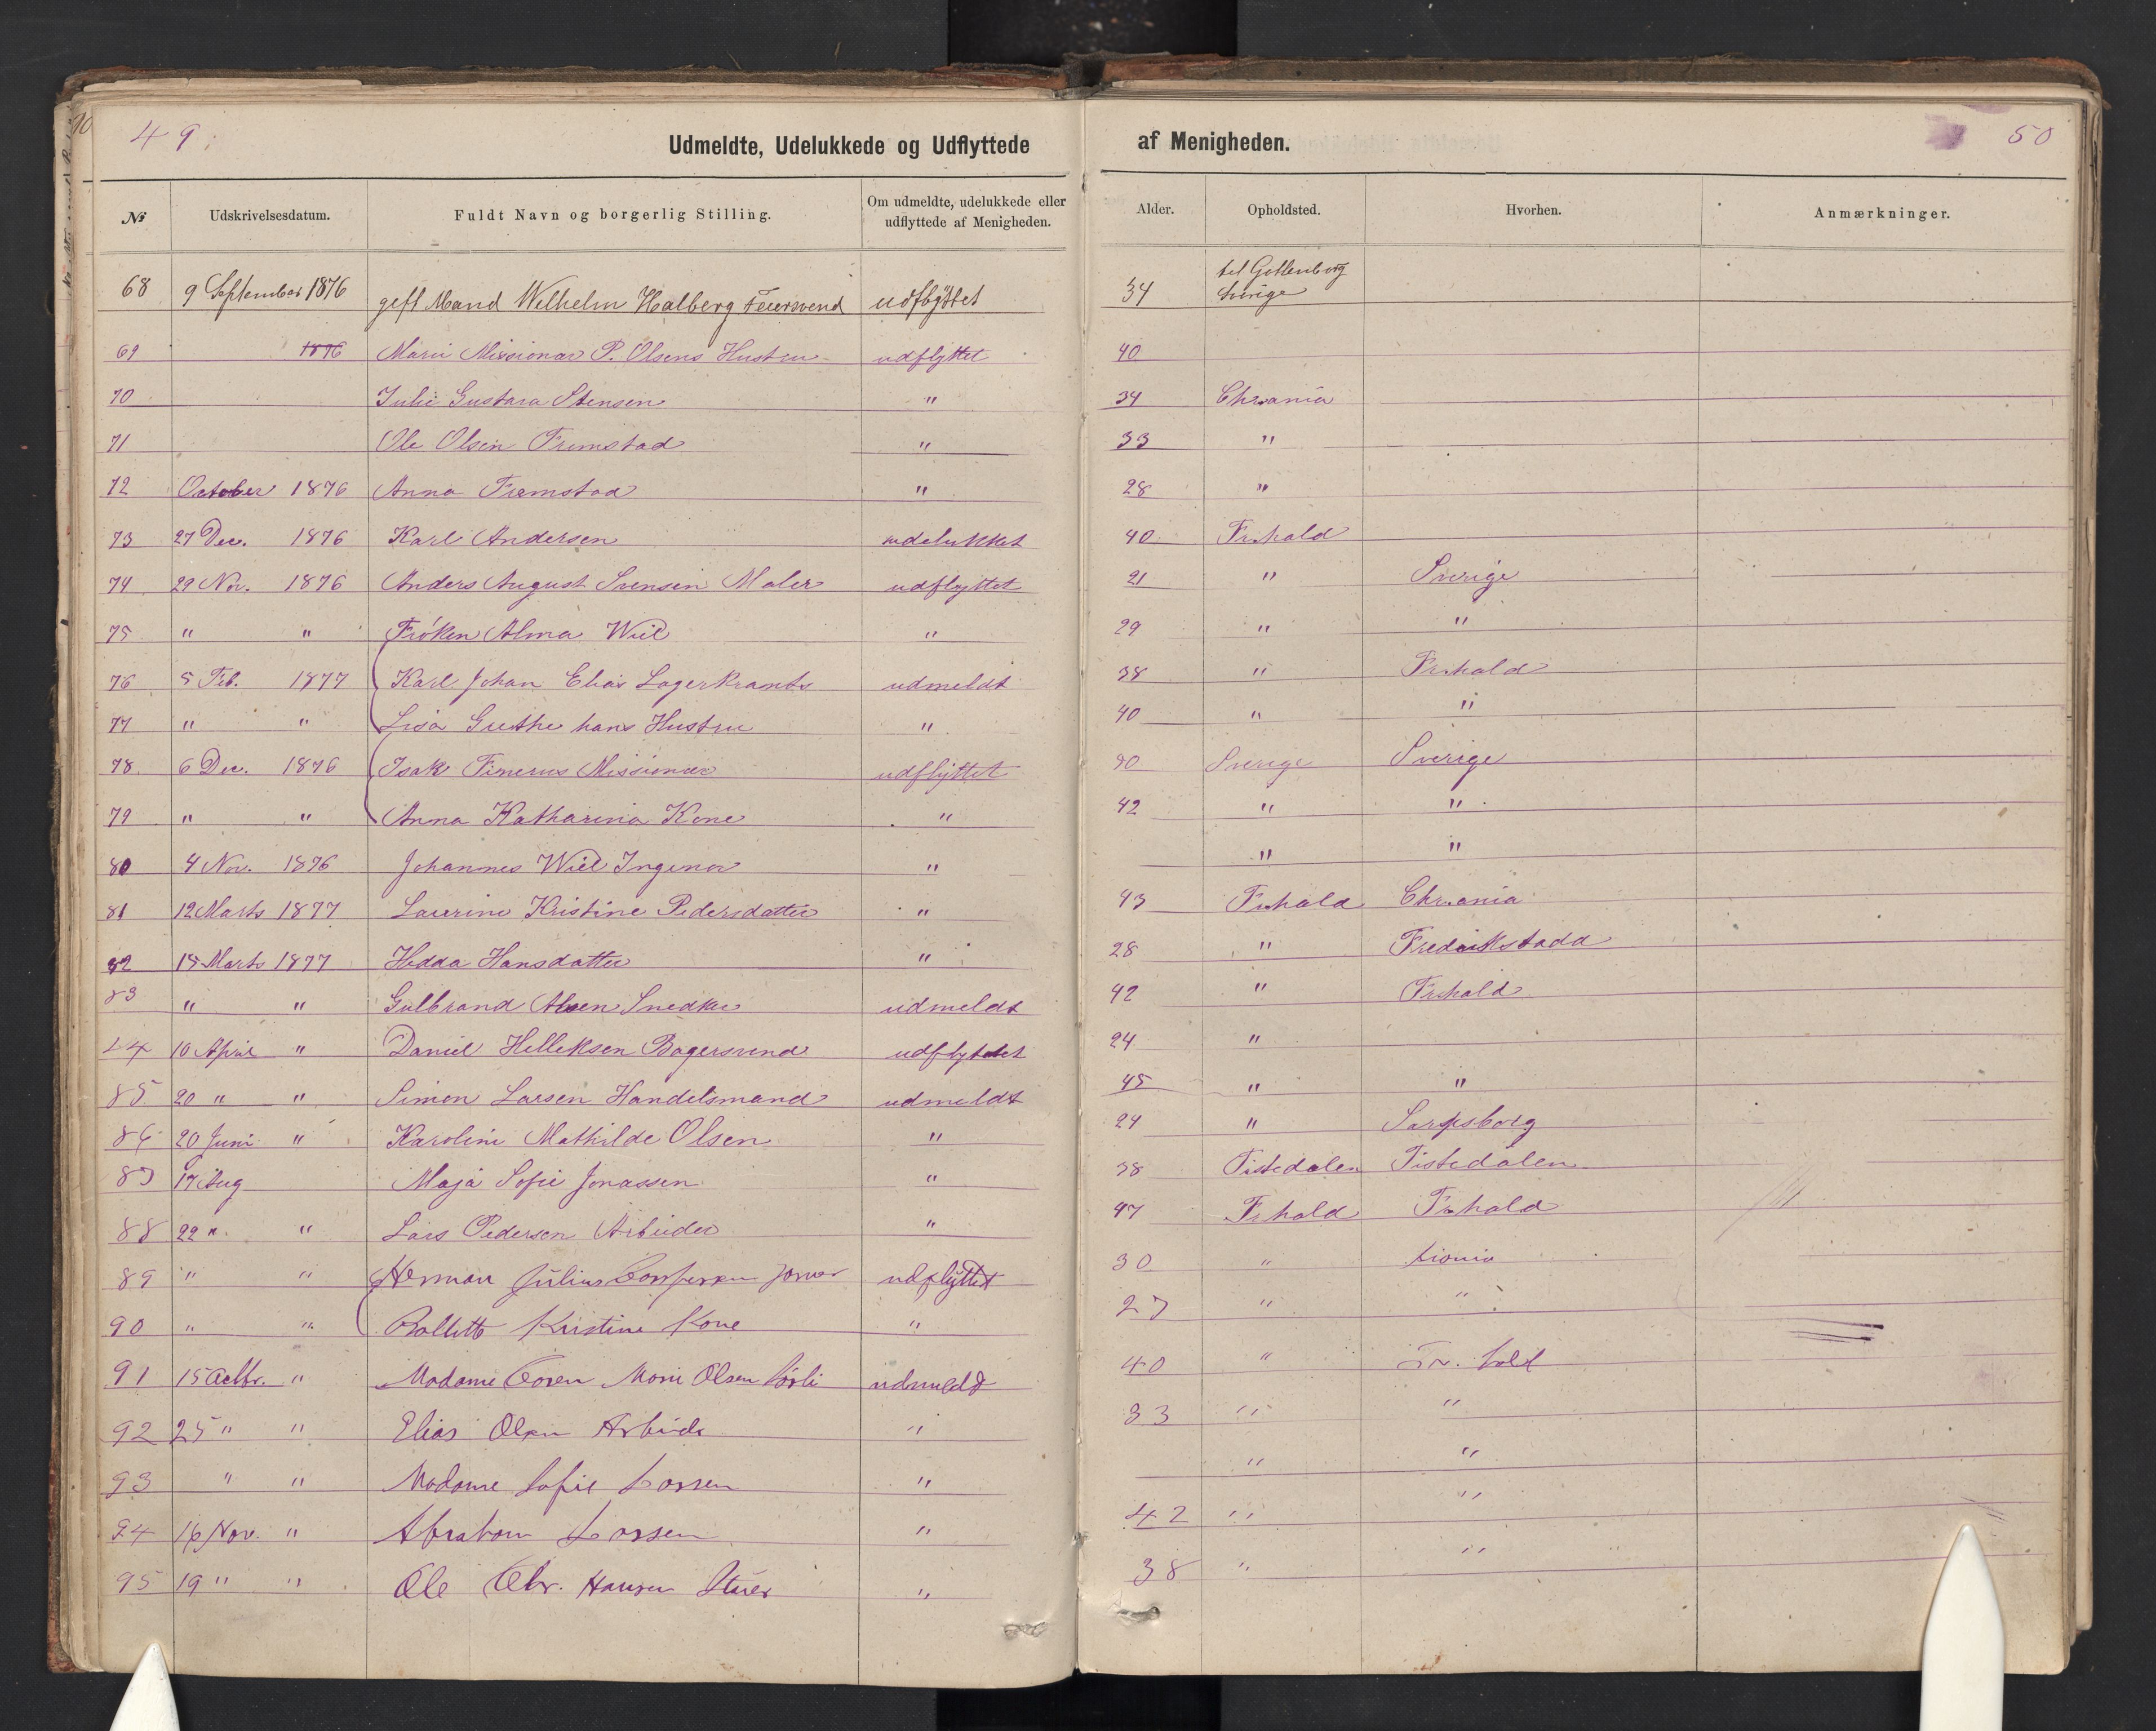 49.
Udmeldte, Udelukkede og Udflyttede af Menigheden.
50
№ Udskrivelsesdatum. Fuldt Navn og borgerlig Stilling. Om udmeldte, udelukkede eller udflyttede af Menigheden. Alder. Opholdsted. Hvorhen. Anmærkninger.
68 9 September 1876 gift Mand Wilhelm Halberg udflyttet 34 til Gottenborg Sverige
69 1876 Marie Missionær P. Olsens Hustru udflyttet 40
70 Julie Gustava Stensen " 34 Chr.ania
71 Ole Olsen Fremstad " 33 "
72 October 1876 Anna Fremstad " 28 "
73 27 Dec. 1876 Karl Andersen udelukket 40 Fr.hald
74 29 Nov. 1876 Anders August Svensen Maler udflyttet 21 " Sverige
75 " " Frøken Alma Wiel " 29 " "
76 5 Feb. 1877 Karl Johan Elias Lagerkrants udmeldt 38 " Fr.hald
77 " " Lisa Grethe hans Hustru " 40 " "
78. 6 Dec. 1876 Isak Missionær udflyttet Sverige Sverige
79 " " Anna Katharina Kone " 42 " "
80 4 Nov. 1876 Johannes Wiel Ingeniør " " "
81 12 Marts 1877 Laurine Kristine Pedersdatter " 43 Fr.hald Chr.ania
82 15 Marts 1877 Hedda Hansdatter " 28 " Fredrikstadd
83 " " Gulbrand Snedker udmeldt 42 " Fr.hald
84 10 April " Daniel Helleksen Bagersvend udflyttet 24 "
85 20 " " Simon Larsen Handelsmand udmeldt 45 " "
86 20 Juni " Karoline Mathilde Olsen " 24 " Sarpsborg
87 17 Aug Maja Sofie Jonassen " 38 Tistedalen Tistedalen
88 22 " " Lars Pedersen Arbeider " 47 Fr.hald Fr.hald
89 " " Herman Julius udflyttet 30 "
90 " " Kristine Kone " 27 " "
91 15 Octbr. " Madame Maren Marie Olsen udmeldt 40 " Fr. hald
92 25 " " Elias Olsen Arbeider " 33 " "
93 " " Madame Sofie Larsen " " "
94 16 Nov. " Abraham Larsen " 42 " "
95 19 " " Ole Chr. Hansen " 38 " "